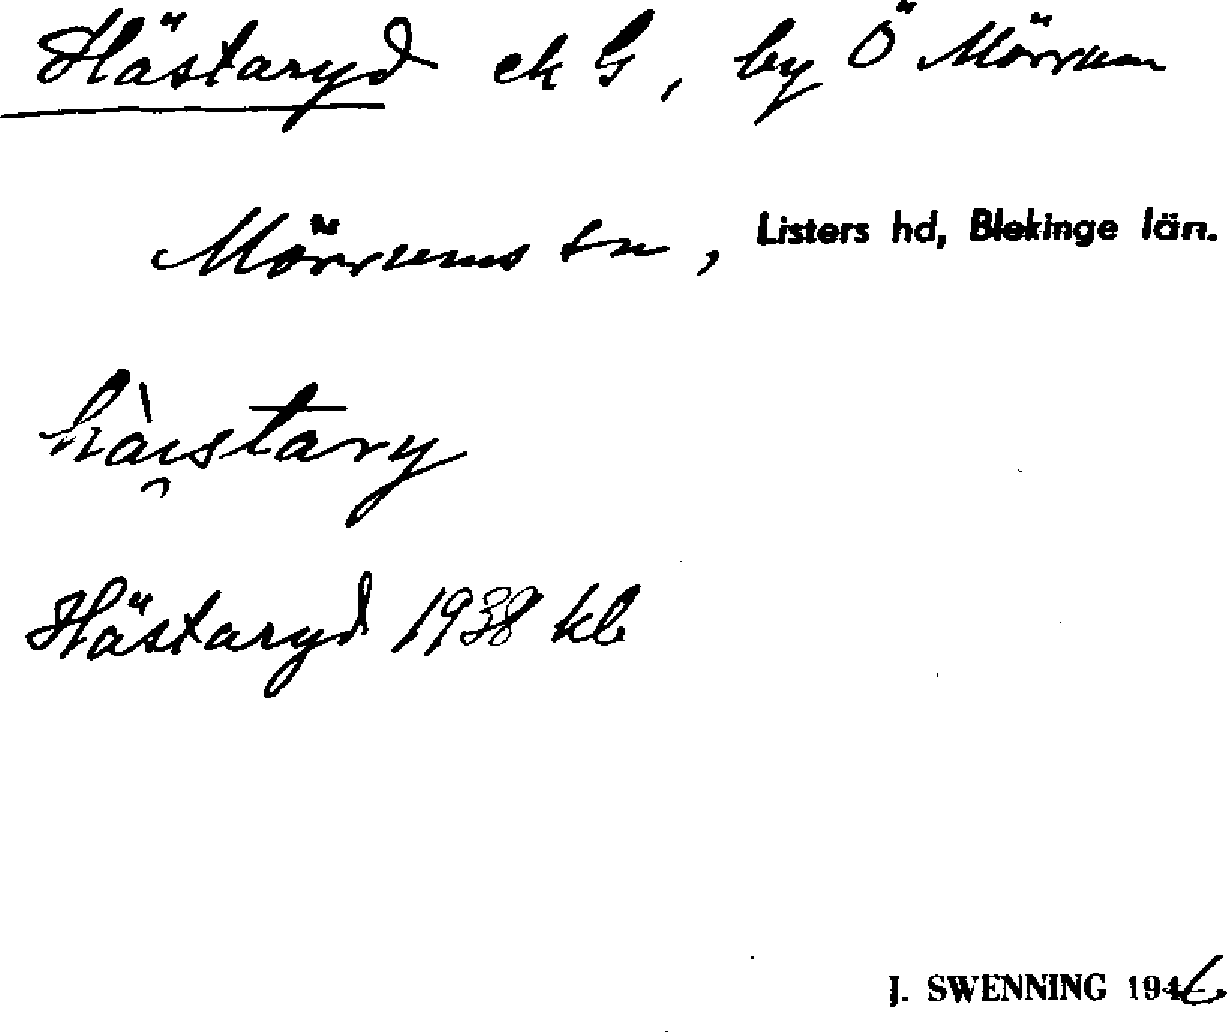 Hästaryd ek G, by Ö Mörrum
Mörrums sn, Listers hd, Blekinge län.
hàistary
Hästaryd 1938 kb
J. SWENNING 1946